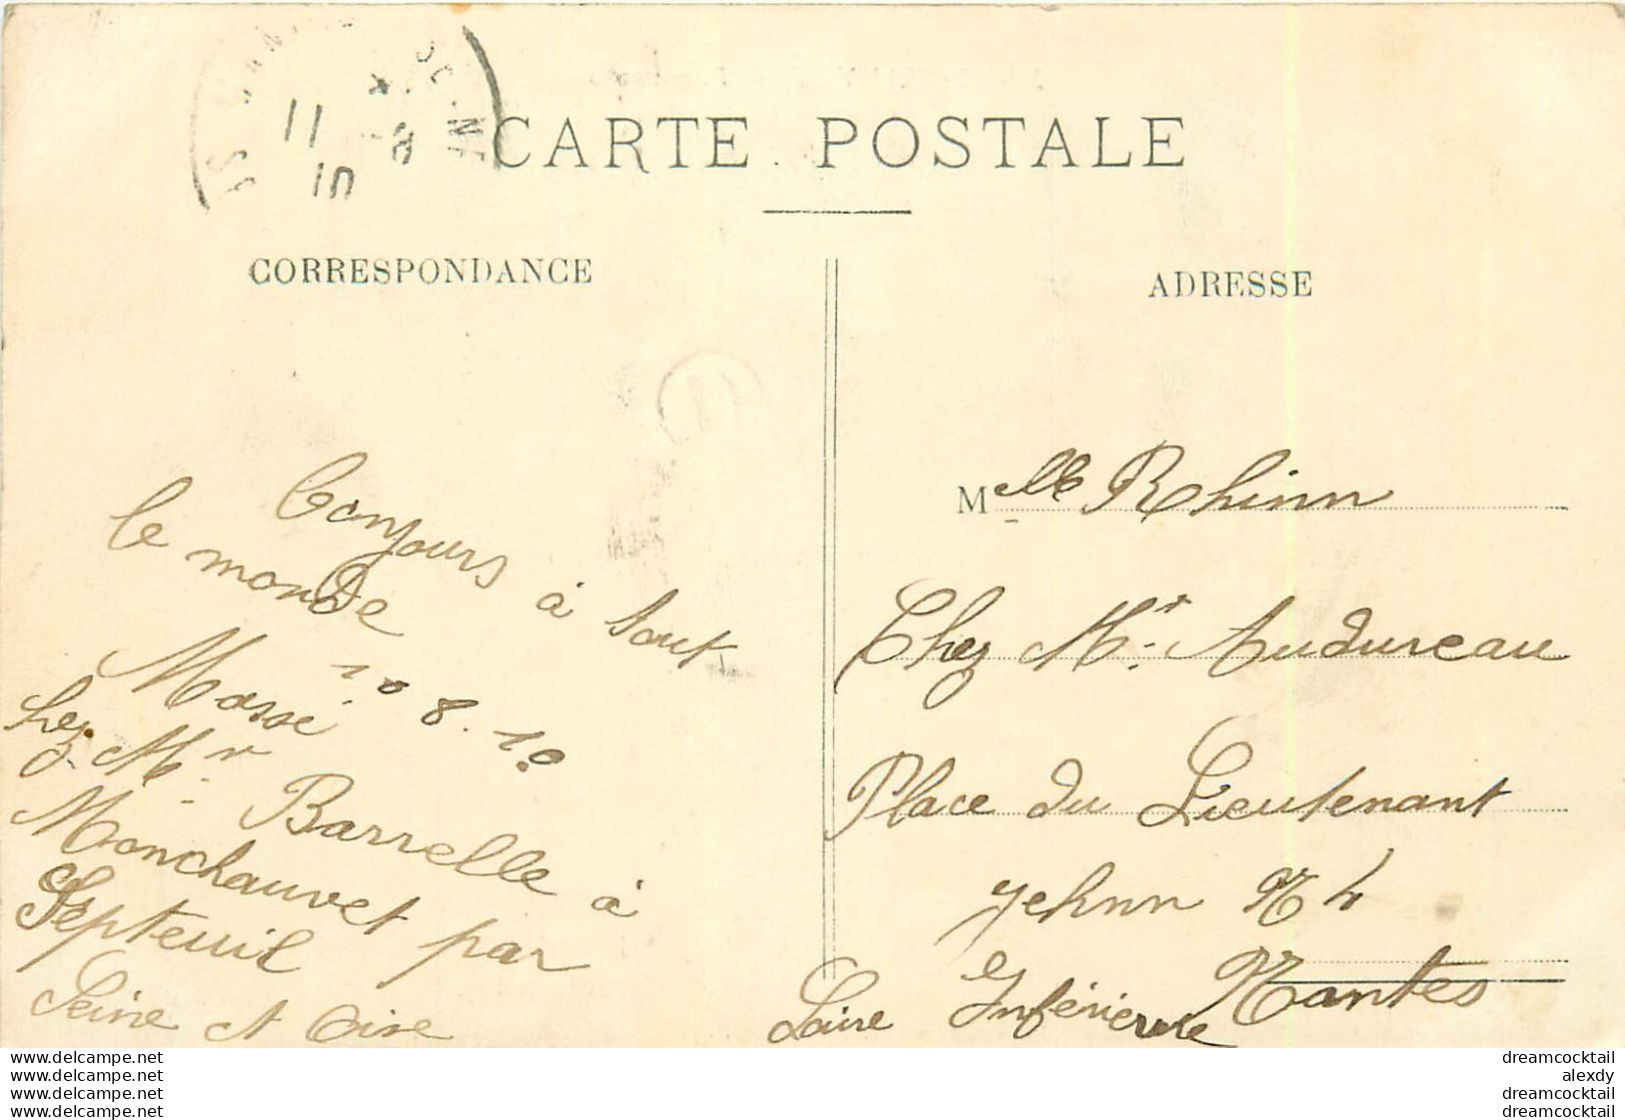 11
10
CARTE POSTALE
CORRESPONDANCE
Bonjours à tout
le monde
Massé 10 8.10
chez Mr Barrelle à
Monchauvet par
Septeuil
Seine et Oise
ADRESSE
Melle Rhinn
Chez Mr Audureau
Place du Lieutenant
Jehnn N 4
Nantes
Loire Inférieure
www.delcampe.net
www.delcampe.net
www.delcampe.net
www.delcampe.net
dreamcocktail
alexdy
dreamcocktail
dreamcocktail